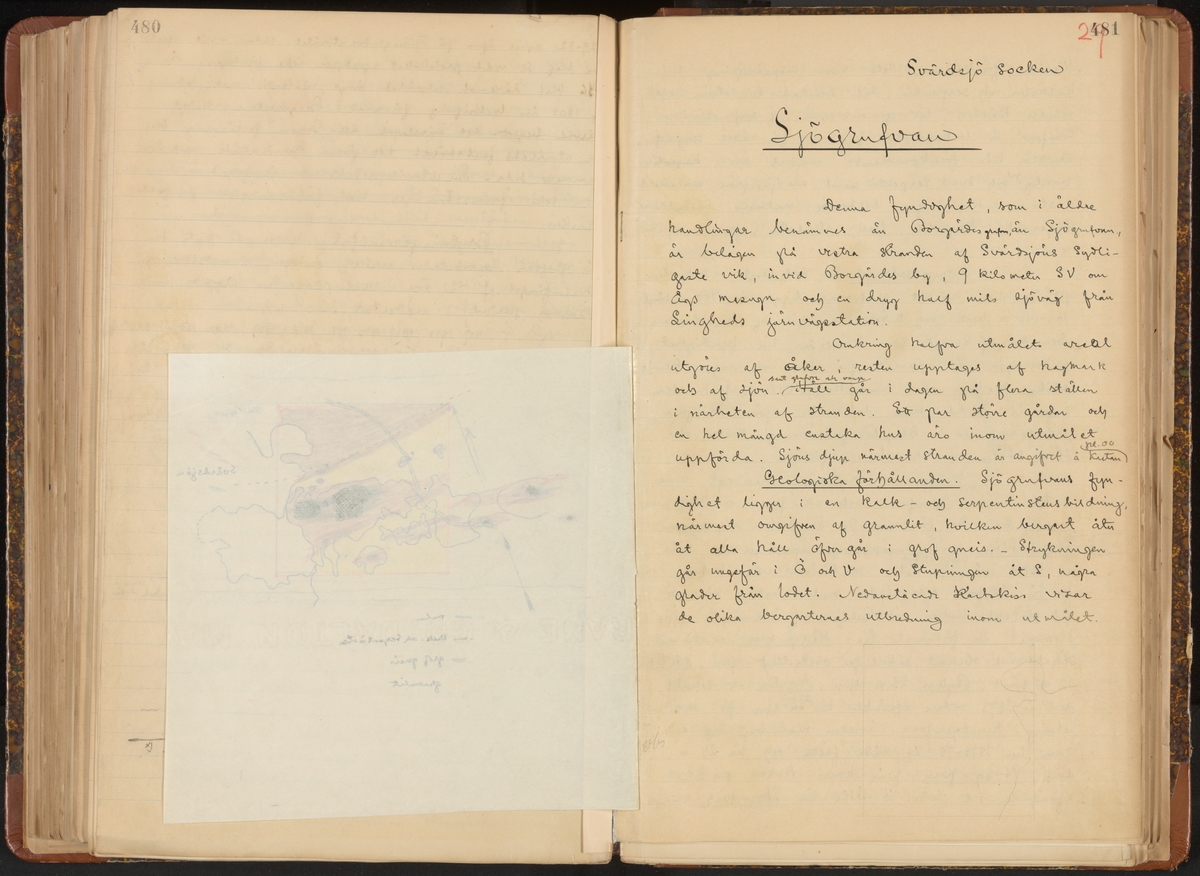 480
481
Svärdsjö socken
Sjögrufvan
Denna fyndighet, som i äldre
handlingar benämnes än Borgärdesgrufvan, än Sjögrufvan,
är belägen på vestra stranden af Svärdsjöns sydli-
gaste vik, invid Borgärdes by, 9 kilometer SV om
Ågs masugn och en dryg half mils sjöväg från
Lingheds järnvägsstation.
Omkring halfva utmålets areal
utgöres af åker, resten upptages af hagmark
och af sjön. Häll går i dagen på flera ställen
i närheten af stranden. Ett par större gårdar och
en hel mängd enstaka hus äro inom utmålet
uppförda. Sjöns djup närmast stranden är angifvet å kartan
Geologiska förhållanden. Sjögrufvans fyn-
dighet ligger i en kalk- och serpentinstensbildning,
närmast omgifven af granulit, hvilken bergart åter
åt alla håll öfvergår i grof gneis. - Strykningen
går ungefär i Ö och V och stupningen åt S, några
grader från lodet. Nedanstående kartskiss visar
de olika bergarternas utbredning inom utmålet.
Svärdsjön
grof gneis
granulit